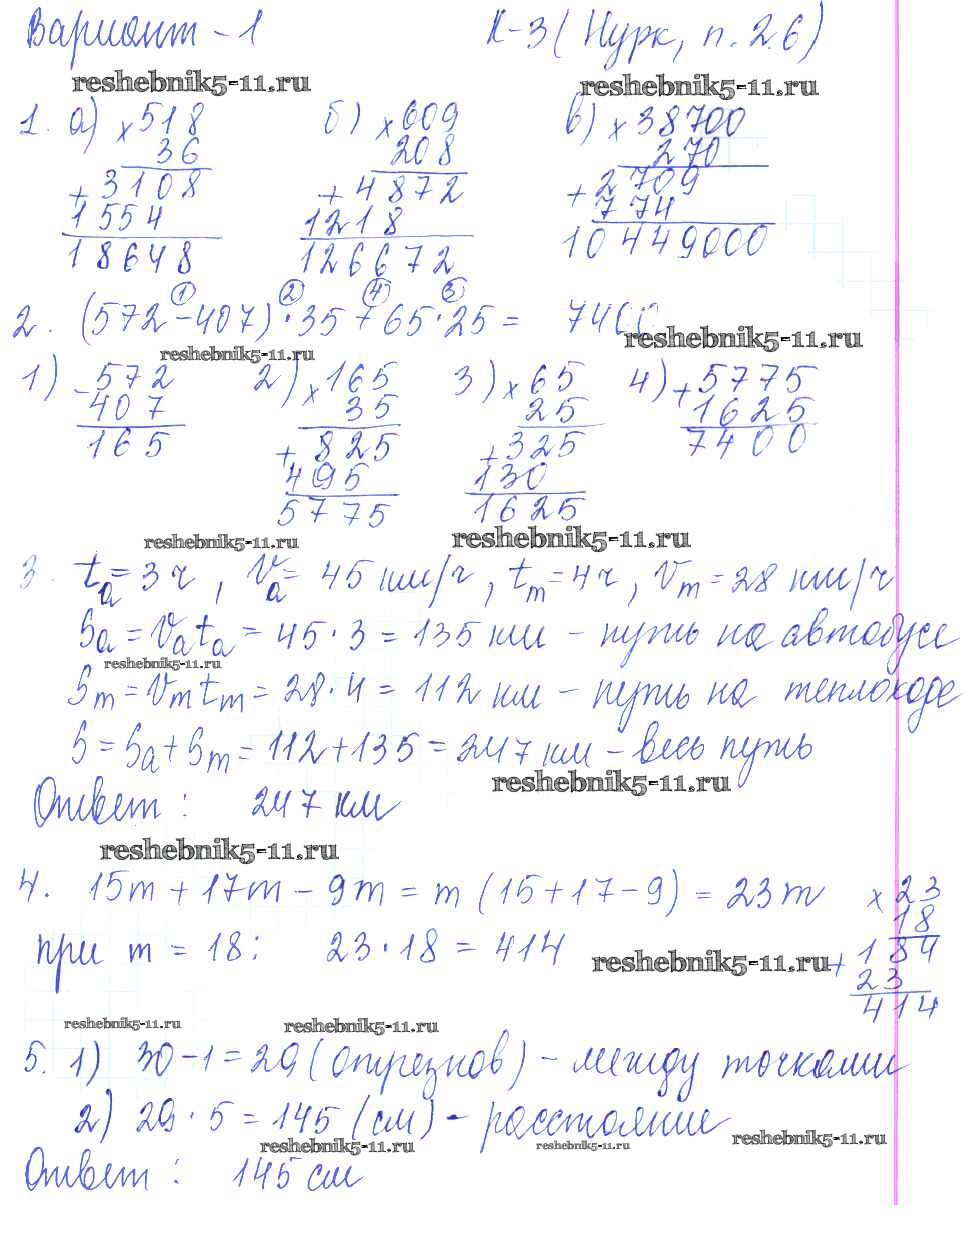 Вариант - 1 К-3 (Нурк, п. 2.6)
reshebnik5-11.ru reshebnik5-11.ru
1. а) × 518 б) × 609 в) × 38700
36 208 270
+ 3108 + 4872 + 2709
1554 1218 774
18648 126672 10449000
① ② ④ ③
2. (572 - 407) · 35 + 65 · 25 = 7400
reshebnik5-11.ru reshebnik5-11.ru
1) - 572 2) × 165 3) × 65 4) + 5775
407 35 25 1625
165 + 825 + 325 7400
495 130
5775 1625
reshebnik5-11.ru reshebnik5-11.ru
3. tа = 3 ч, Vа = 45 км/ч, tт = 4 ч, Vт = 28 км/ч
Sа = Vа tа = 45 · 3 = 135 км - путь на автобусе
reshebnik5-11.ru
Sт = Vт tт = 28 · 4 = 112 км - путь на теплоходе
S = Sа + Sт = 112 + 135 = 247 км - весь путь
reshebnik5-11.ru
Ответ: 247 км
reshebnik5-11.ru
4. 15m + 17m - 9m = m (15 + 17 - 9) = 23m × 23
18
при m = 18: 23 · 18 = 414 + 184
reshebnik5-11.ru 23
414
reshebnik5-11.ru reshebnik5-11.ru
5. 1) 30 - 1 = 29 (отрезков) - между точками
2) 29 · 5 = 145 (см) - расстояние
reshebnik5-11.ru reshebnik5-11.ru reshebnik5-11.ru
Ответ: 145 см